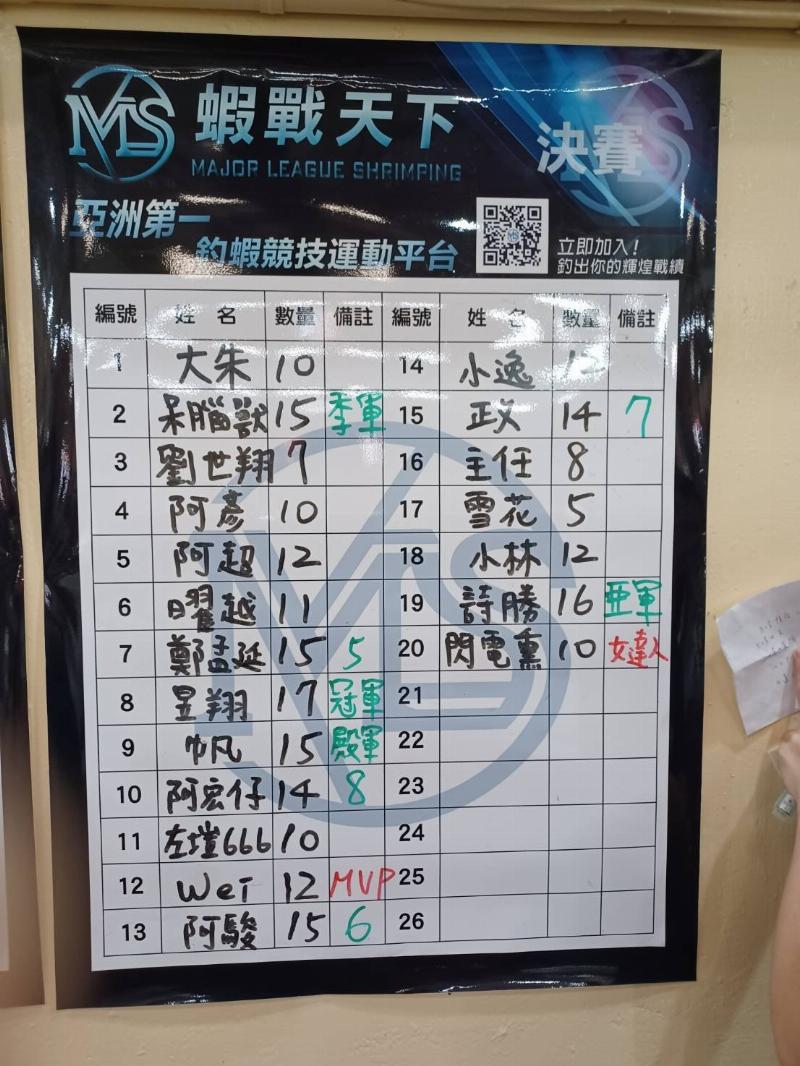 MLS
蝦戰天下
MAJOR LEAGUE SHRIMPING
決賽
亞洲第一
釣蝦競技運動平台
立即加入!
釣出你的輝煌戰績
編號 姓名 數量 備註 編號 姓名 數量 備註
1 大朱 10 14 小逸
2 呆腦獸 15 季軍 15 政 14 7
3 劉世翔 7 16 主任 8
4 阿彥 10 17 雪花 5
5 阿超 12 18 小林 12
6 曜越 11 19 詩勝 16 亞軍
7 鄭孟延 15 5 20 閃電熏 10 女達人
8 昱翔 17 冠軍 21
9 帆 15 殿軍 22
10 阿宏仔 14 8 23
11 左塏666 10 24
12 Wei 12 MVP 25
13 阿駿 15 6 26